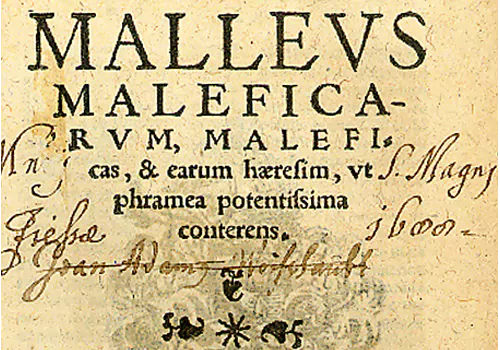 MALLEVS
MALEFICA-
RVM, MALEFI-
cas, & earum hæreſim, vt
phramea potentiſsima
conterens.
S. Magni
Fieſsæ
1600
Joan Adam